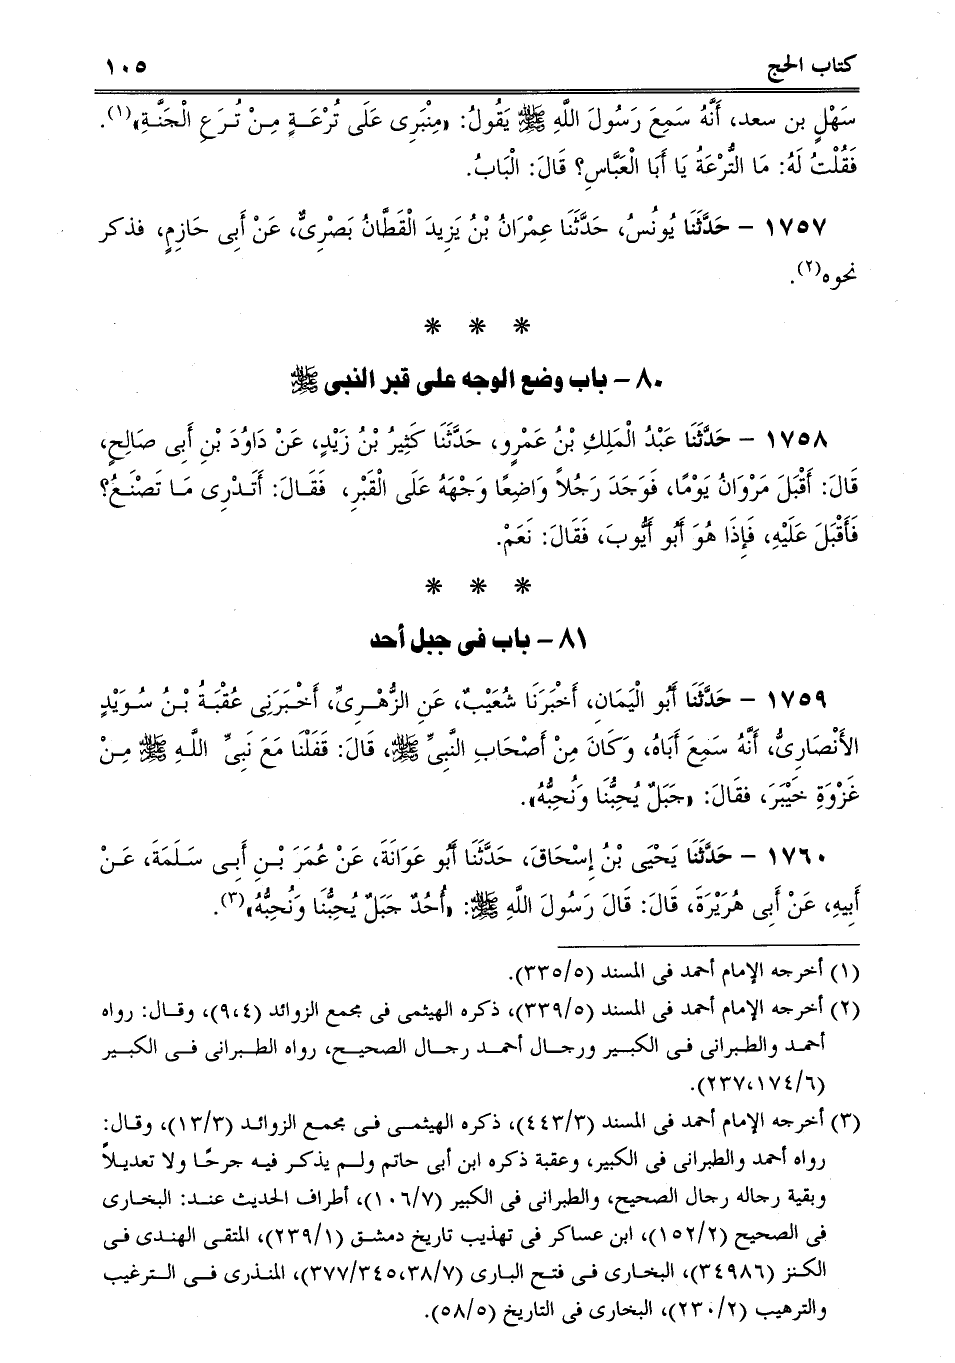 كتاب الحج ١٠٥
سَهْلٍ بن سعد، أَنَّهُ سَمِعَ رَسُولَ اللَّهِ ﷺ يَقُولُ: «مِنْبَرِى عَلَى تُرْعَةٍ مِنْ تُرَعِ الْجَنَّةِ»(١).
فَقُلْتُ لَهُ: مَا التُّرْعَةُ يَا أَبَا الْعَبَّاسِ؟ قَالَ: الْبَابُ.
١٧٥٧ – حَدَّثَنَا يُونُسُ، حَدَّثَنَا عِمْرَانُ بْنُ يَزِيدَ الْقَطَّانُ بَصْرِىٌّ، عَنْ أَبِى حَازِمٍ، فذكر
نحوه(٢).
* * *
٨٠ – باب وضع الوجه على قبر النبى ﷺ
١٧٥٨ – حَدَّثَنَا عَبْدُ الْمَلِكِ بْنُ عَمْرٍو، حَدَّثَنَا كَثِيرُ بْنُ زَيْدٍ، عَنْ دَاوُدَ بْنِ أَبِى صَالِحٍ،
قَالَ: أَقْبَلَ مَرْوَانُ يَوْمًا، فَوَجَدَ رَجُلاً وَاضِعًا وَجْهَهُ عَلَى الْقَبْرِ، فَقَالَ: أَتَدْرِى مَا تَصْنَعُ؟
فَأَقْبَلَ عَلَيْهِ، فَإِذَا هُوَ أَبُو أَيُّوبَ، فَقَالَ: نَعَمْ.
* * *
٨١ – باب فى جبل أحد
١٧٥٩ – حَدَّثَنَا أَبُو الْيَمَانِ، أَخْبَرَنَا شُعَيْبٌ، عَنِ الزُّهْرِىِّ، أَخْبَرَنِى عُقْبَةُ بْنُ سُوَيْدٍ
الأَنْصَارِىُّ، أَنَّهُ سَمِعَ أَبَاهُ، وَكَانَ مِنْ أَصْحَابِ النَّبِىِّ ﷺ، قَالَ: قَفَلْنَا مَعَ نَبِىِّ اللَّهِ ﷺ مِنْ
غَزْوَةِ خَيْبَرَ، فقَالَ: «جَبَلٌ يُحِبُّنَا وَنُحِبُّهُ».
١٧٦٠ – حَدَّثَنَا يَحْيَى بْنُ إِسْحَاقَ، حَدَّثَنَا أَبُو عَوَانَةَ، عَنْ عُمَرَ بْنِ أَبِى سَلَمَةَ، عَنْ
أَبِيهِ، عَنْ أَبِى هُرَيْرَةَ، قَالَ: قَالَ رَسُولَ اللَّهِ ﷺ: «أُحُدٌ جَبَلٌ يُحِبُّنَا وَنُحِبُّهُ»(٣).
(١) أخرجه الإمام أحمد فى المسند (٣٣٥/٥).
(٢) أخرجه الإمام أحمد فى المسند (٣٣٩/٥)، ذكره الهيثمى فى مجمع الزوائد (٩،٤)، وقال: رواه
أحمد والطبرانى فى الكبير ورجال أحمد رجال الصحيح، رواه الطبرانى فى الكبير
(٢٣٧،١٧٤/٦).
(٣) أخرجه الإمام أحمد فى المسند (٤٤٣/٣)، ذكره الهيثمى فى مجمع الزوائد (١٣/٣)، وقال:
رواه أحمد والطبرانى فى الكبير، وعقبة ذكره ابن أبى حاتم ولم يذكر فيه جرحًا ولا تعديلاً
وبقية رجاله رجال الصحيح، والطبرانى فى الكبير (١٠٦/٧)، أطراف الحديث عند: البخارى
فى الصحيح (١٥٢/٢)، ابن عساكر فى تهذيب تاريخ دمشق (٢٣٩/١)، المتقى الهندى فى
الكنز (٣٤٩٨٦)، البخارى فى فتح البارى (٣٧٧/٣٤٥،٣٨/٧)، المنذرى فى الترغيب
والترهيب (٢٣٠/٢)، البخارى فى التاريخ (٥٨/٥).